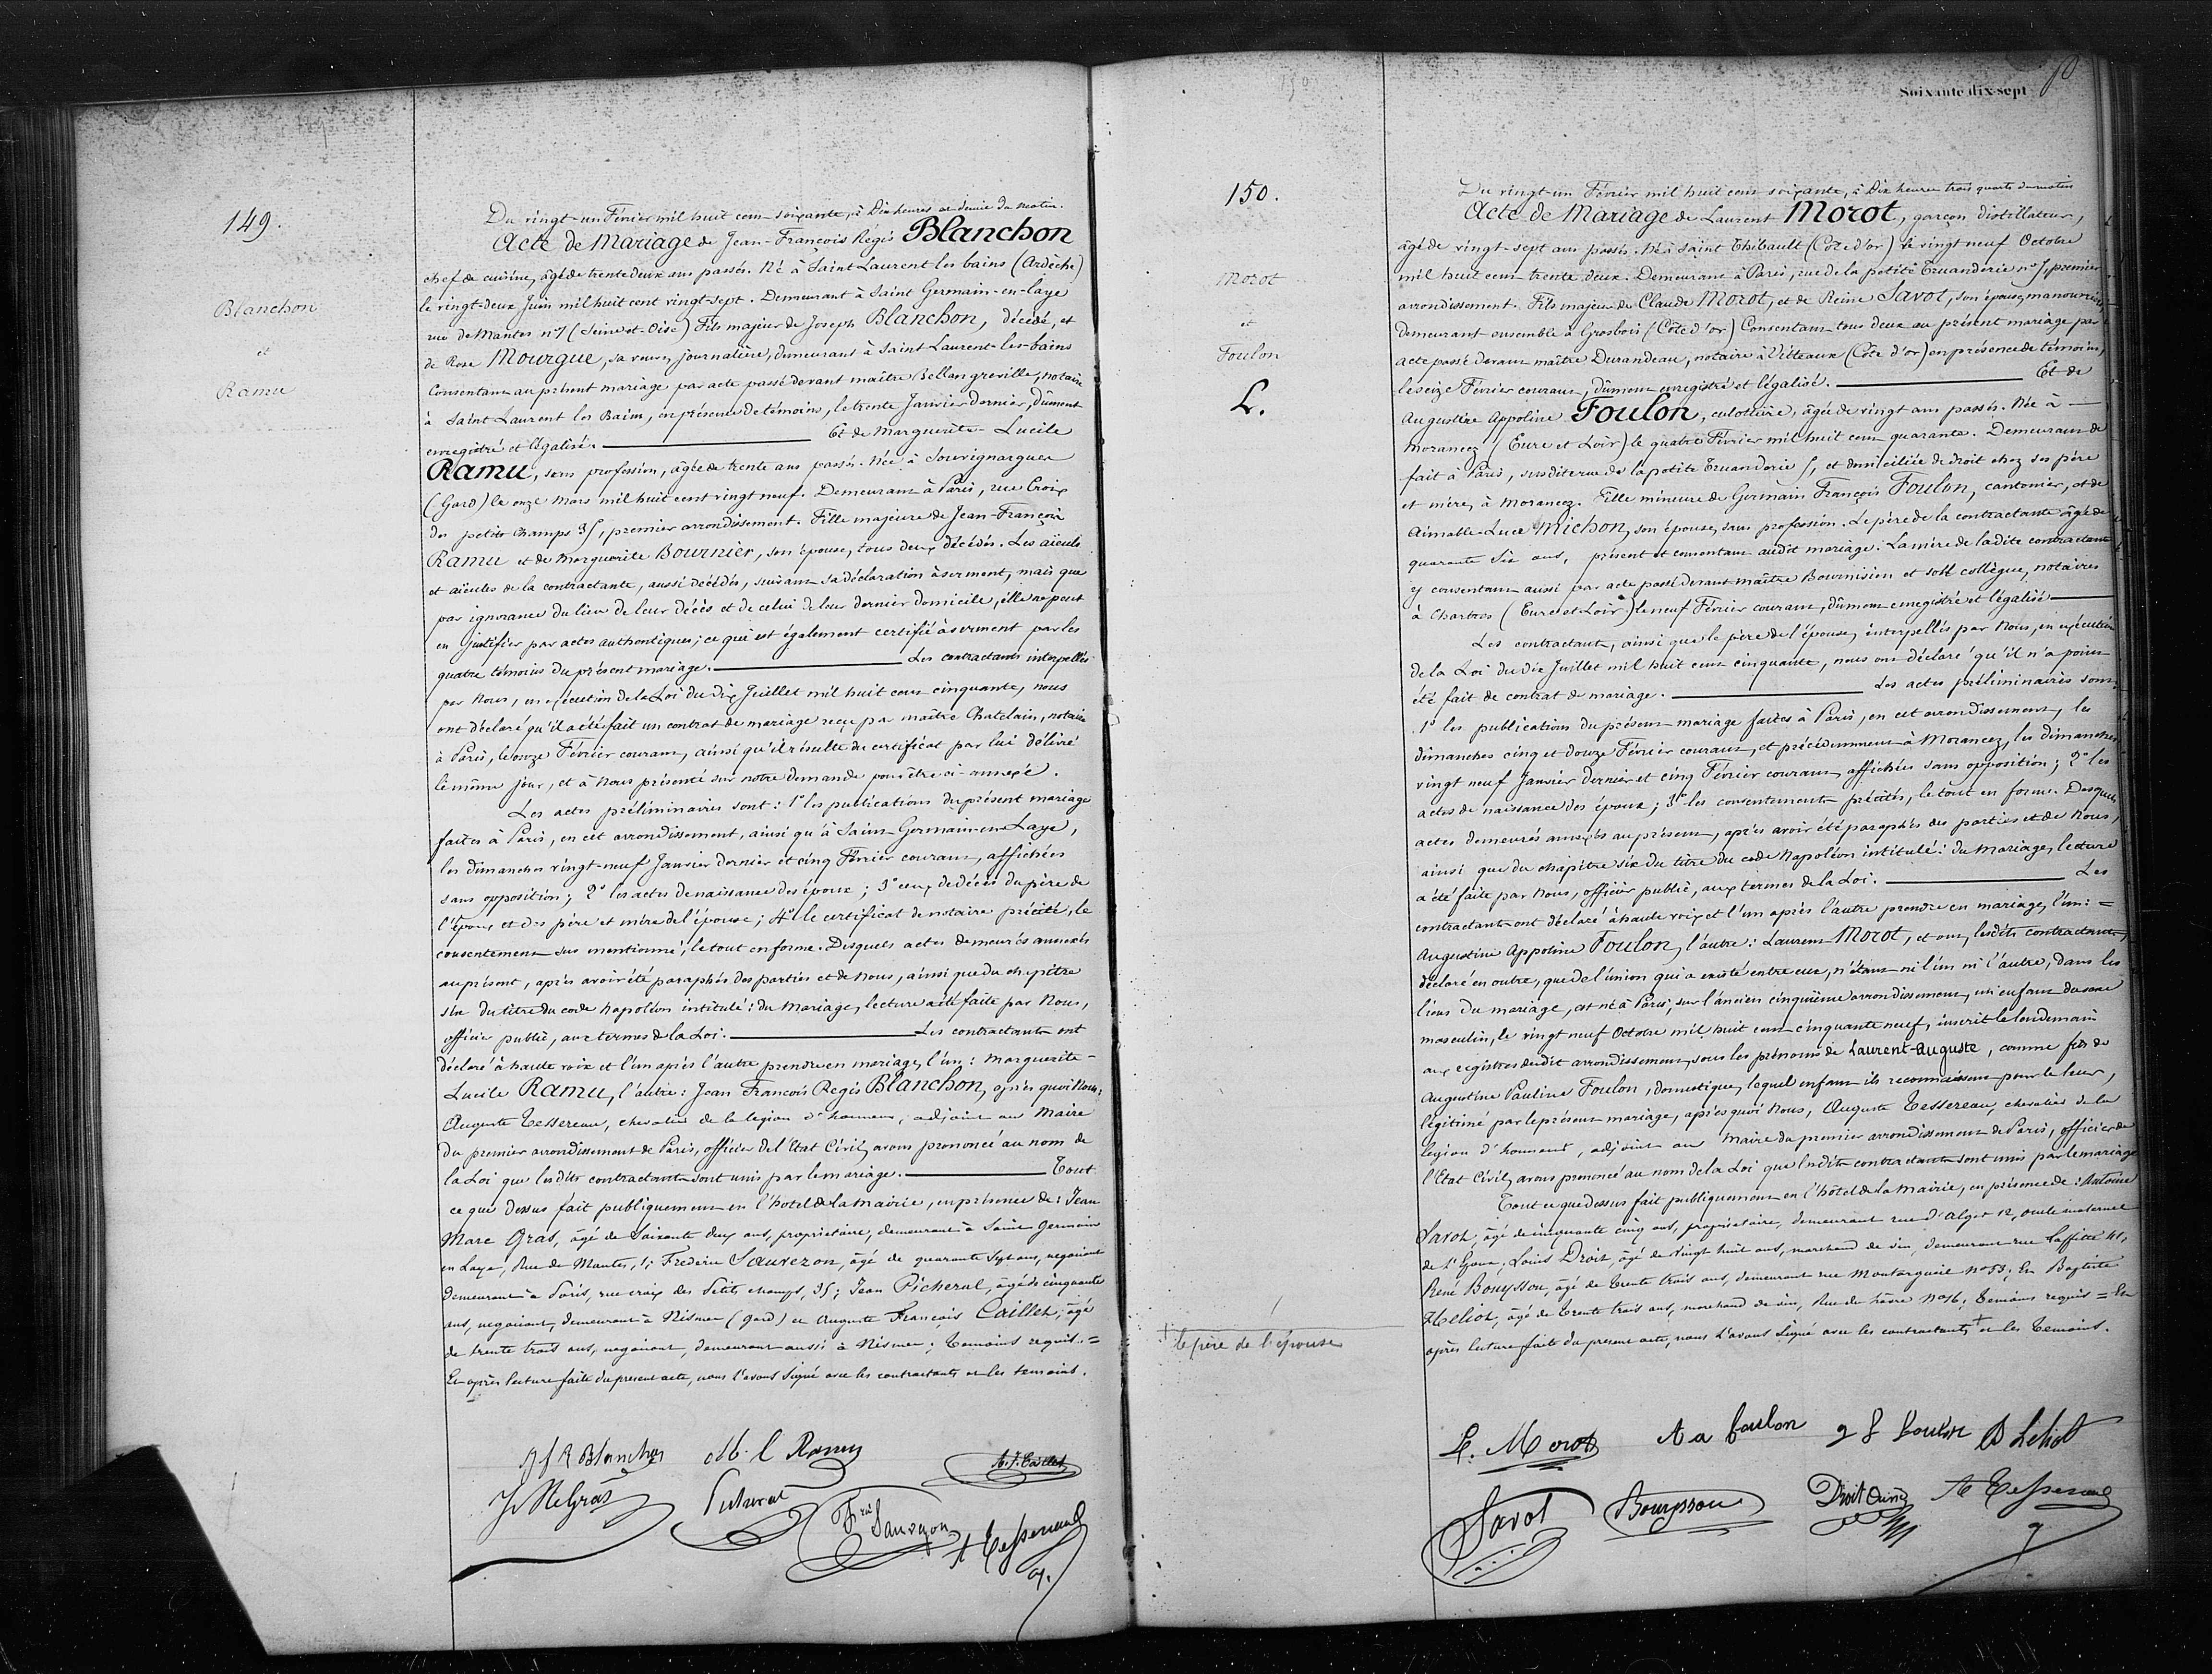 149.
Blanchon
et
Ramu
Du vingt-un Février mil huit cent soixante, à Dix heures et demie du matin.
Acte de Mariage de Jean-François Régis Blanchon
chef de cuisine, âgé de trente deux ans passés. Né à Saint Laurent les bains (Ardèche)
le vingt-deux Juin mil huit cent vingt-sept. Demeurant à Saint Germain-en-laye
rue de Mantes n° 1 (Seine-et-Oise) Fils majeur de Joseph Blanchon, décédé, et
de Rose Mourgue, sa veuve, journalière, demeurant à Saint Laurent-les-bains
Consentant au présent mariage par acte passé devant maître Bellangreville, notaire
à Saint Laurent les Bains, en présence de témoins, le trente Janvier dernier, dûment
enregistré et légalisé. Et de Marguerite-Lucile
Ramu, sans profession, âgée de trente ans passés. Née à Souvignargues
(Gard) le onze Mars mil huit cent vingt neuf. Demeurant à Paris, rue Croix
des petits Champs 35, premier arrondissement. Fille majeure de Jean-François
Ramu et de Marguerite Bournier, son épouse, tous deux décédés. Les aïeuls
et aïeules de la contractante, aussi décédés, suivant sa déclaration à serment, mais que
par ignorance du lieu de leur décès et de celui de leur dernier domicile, elle ne peut
en justifier par actes authentiques; ce qui est également certifié à serment par les
quatre témoins du présent mariage. Les contractants interpellés
par Nous, en exécution de la Loi du Dix Juillet mil huit cent cinquante, nous
ont déclaré qu'il a été fait un contrat de mariage reçu par maître Chatelain, notaire
à Paris, le onze Février courant, ainsi qu'il résulte du certificat par lui délivré
le même jour, et à Nous présenté sur notre demande pour être ci-annexé.
Les actes préliminaires sont: 1° les publications du présent mariage
faites à Paris, en cet arrondissement, ainsi qu'à Saint-Germain-en-Laye,
les dimanches vingt-neuf Janvier dernier et cinq Février courant, affichées
sans opposition; 2° les actes de naissance des époux; 3° ceux de décès du père de
l'époux et des père et mère de l'épouse; 4° le certificat de notaire précité, le
consentement sus mentionné, le tout en forme. Desquels actes demeurés annexés
au présent, après avoir été paraphés des parties et de Nous, ainsi que du chapitre
six du titre du code Napoléon intitulé: du Mariage, lecture a été faite par Nous,
officier public, aux termes de la Loi. Les contractants ont
déclaré à haute voix et l'un après l'autre prendre en mariage, l'un: Marguerite-
Lucile Ramu, l'autre: Jean François Regis Blanchon, après quoi Nous,
Auguste Tessereau, chevalier de la légion d'honneur, adjoint au Maire
du premier arrondissement de Paris, officier de l'Etat Civil, avons prononcé au nom de
la Loi que lesdits contractants sont unis par le mariage. Tout
ce que dessus fait publiquement en l'hotel de la Mairie, en présence de: Jean
Marc Gras, âgé de Soixante deux ans, propriétaire, demeurant à Saint Germain
en Laye, Rue de Mantes, 1; Frederic Sauvezon, âgé de quarante sept ans, négociant
demeurant à Paris, rue croix des Petits champs, 35; Jean Picheral, âgé de cinquante
ans, négociant, demeurant à Nismes (Gard) et Auguste François Caillet, âgé
de trente trois ans, négociant, demeurant aussi à Nismes; Témoins requis.=
Et après lecture faite du présent acte, nous l'avons signé avec les contractants et les temoins.
J f R Blanchon M. l Ramu A. F. Caillet
J M Gras Picheral Fric Sauvezon A Tessereau
Soixante dix-sept
150.
Morot
et
Foulon
L.
Du vingt-un Février mil huit cent soixante, à Dix heures trois quarts du matin
Acte de Mariage de Laurent Morot, garçon distillateur,
âgé de vingt-sept ans passés. Né à Saint Thibault (Côte d'or) le vingt neuf Octobre
mil huit cent trente deux. Demeurant à Paris, rue de la petite Truanderie n° 5, premier
arrondissement. Fils majeur de Claude Morot, et de Reine Savot, son épouse, manouvriers,
demeurant ensemble à Grosbois (Côte d'or) Consentant tous deux au présent mariage par
acte passé devant maître Durandeau, notaire à Vitteaux (Côte d'or) en présence de témoins,
le seize Février courant, dûment enregistré et légalisé. Et de
Augustine Appoline Foulon, culotière, âgée de vingt ans passés. Née à
Morancez (Eure et Loir) le quatre Février mil huit cent quarante. Demeurant de
fait à Paris, susdite rue de la petite Truanderie 5, et domiciliée de droit chez ses père
et mère, à Morancez. Fille mineure de Germain François Foulon, cantonier, et de
Aimable-Luce Michon, son épouse, sans profession. Le père de la contractante âgé de
quarante six ans, présent et consentant audit mariage. La mère de ladite contractante
y consentant aussi par acte passé devant maître Bournisien et son collègue, notaires
à Chartres (Eure-et-Loir) le neuf Février courant, dûment enregistré et légalisé
Les contractants, ainsi que le père de l'épouse, interpellés par Nous, en exécution
de la Loi du Dix Juillet mil huit cent cinquante, nous ont déclaré qu'il n'a point
été fait de contrat de mariage. Les actes préliminaires sont:
1° les publications du présent mariage faites à Paris, en cet arrondissement, les
dimanches cinq et douze Février courant, et précédemment à Morancez, les dimanches
vingt neuf Janvier dernier et cinq Février courant, affichées sans opposition; 2° les
actes de naissance des époux; 3° les consentements précités, le tout en forme. Desquels
actes demeurés annexés au présent, après avoir été paraphés des parties et de Nous,
ainsi que du chapitre six du titre du code Napoléon intitulé: du Mariage, lecture
a été faite par Nous, officier public, aux termes de la Loi. Les
contractants ont déclaré à haute voix et l'un après l'autre prendre en mariage, l'un:=
Augustine Appoline Foulon, l'autre: Laurent Morot, et ont, lesdits contractants,
déclaré en outre, que de l'union qui a existé entre eux, n'étant ni l'un ni l'autre, dans les
liens du mariage, est né à Paris, sur l'ancien cinquième arrondissement, un enfant du sexe
masculin, le vingt neuf Octobre mil huit cent cinquante neuf, inscrit le lendemain
aux registres dudit arrondissement, sous les prénoms de Laurent-Auguste, comme fils de
Augustine Pauline Foulon, domestique, lequel enfant ils reconnaissent pour le leur,
légitimé par le présent mariage, après quoi Nous, Auguste Tessereau, chevalier de la
légion d'honneur, adjoint au Maire du premier arrondissement de Paris, officier de
l'Etat Civil, avons prononcé au nom de la Loi que lesdits contractants sont unis par le mariage
Tout ce que dessus fait publiquement en l'hôtel de la Mairie, en présence de: Antoine
Savot, âgé de cinquante cinq ans, propriétaire, demeurant rue d'alger 12, oncle maternel
de l'Epoux, Louis Droit, âgé de vingt huit ans, marchand de vin, demeurant rue Laffitte 41,
René Bouyssou, âgé de trente trois ans, demeurant rue Montorgueil n° 53; Et Baptiste
Héliot, âgé de trente trois ans, marchand de vin, Rue du hâvre n° 16; Témoins requis = Et
après lecture faite du présent acte, nous l'avons signé avec les contractants + et les témoins.
+ le père de l'épouse
L. Morot A a foulon g f foulon B héliot
Savot Bouyssou Droit A Tessereau